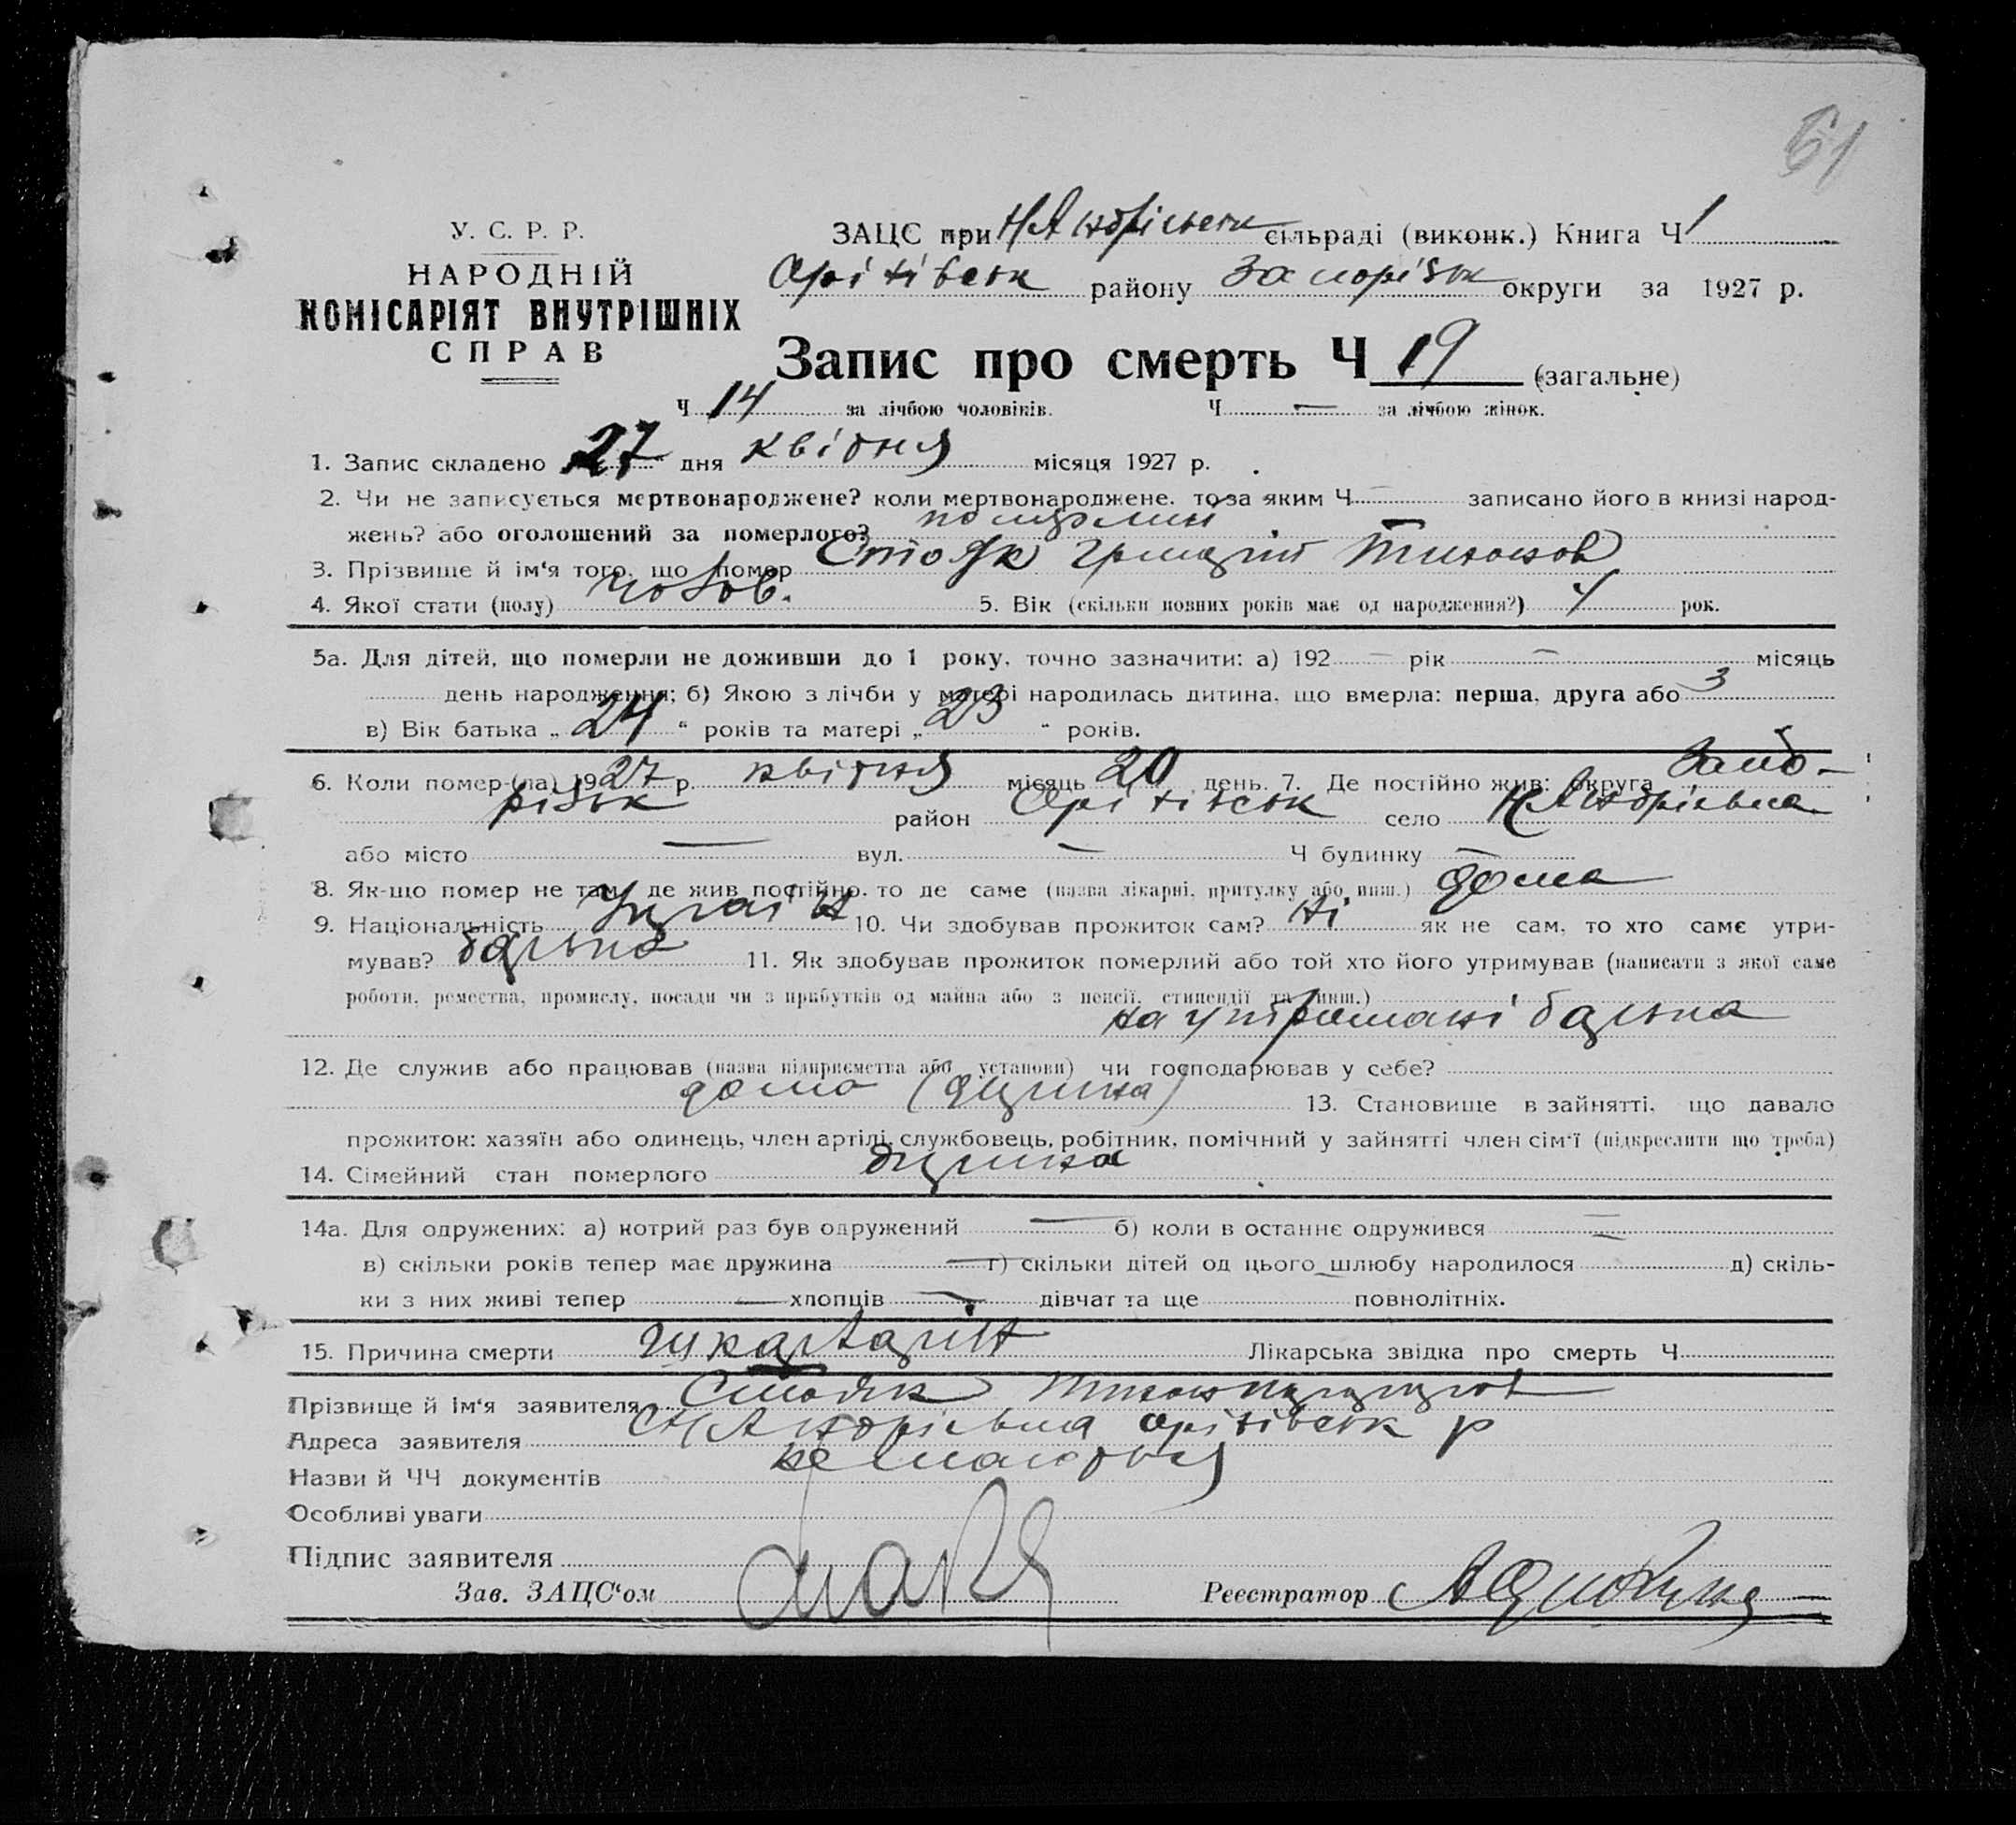 61
У. С. Р. Р.
НАРОДНІЙ
КОМІСАРІЯТ ВНУТРІШНІХ
СПРАВ
ЗАЦС при сільраді (виконк.) Книга Ч 1
Оріхівськ району Запоріжж округи за 1927 р.
Запис про смерть Ч 19 (загальне)
Ч 14 за лічбою чоловіків. Ч — за лічбою жінок.
1. Запис складено 27 дня квітня місяця 1927 р.
2. Чи не записується мертвонароджене? коли мертвонароджене, то за яким Ч — записано його в книзі народ-
жень? або оголошений за померлого?
3. Прізвище й ім'я того, що помер Стояк Тихонов
4. Якої статі (полу) чолов. 5. Вік (скільки повних років має од народження?) рок.
5а. Для дітей, що померли не доживши до 1 року, точно зазначити: а) 192 — рік — місяць
день народження; б) Якою з лічби у матері народилась дитина, що вмерла: перша, друга або 3
в) Вік батька „ 24 “ років та матері „ 23 “ років.
6. Коли помер-(ла) 1927 р. квітня місяць 20 день. 7. Де постійно жив: округа Запо-
ріжж район Оріхівськ село
або місто — вул. — Ч будинку —
8. Як-що помер не там, де жив постійно, то де саме (назва лікарні, притулку або инш.) дома
9. Національність 10. Чи здобував прожиток сам? ні як не сам, то хто саме утри-
мував? батько 11. Як здобував прожиток померлий або той хто його утримував (написати з якої саме
роботи, ремества, промислу, посади чи з прибутків од майна або з пенсії, стипендії та инш.)
на утриманні батька
12. Де служив або працював (назва підприємства або установи) чи господарював у себе?
дома (дитина) 13. Становище в зайнятті, що давало
прожиток: хазяїн або одинець, член артілі, службовець, робітник, помічний у зайнятті член сім'ї (підкреслити що треба)
14. Сімейний стан померлого дитина
14а. Для одружених: а) котрий раз був одружений — б) коли в останнє одружився —
в) скільки років тепер має дружина — г) скільки дітей од цього шлюбу народилося — д) скіль-
ки з них живі тепер — хлопців — дівчат та ще повнолітніх.
15. Причина смерти Лікарська звідка про смерть Ч
Прізвище й ім'я заявителя Стояк
Адреса заявителя Оріхівськ р
Назви й ЧЧ документів
Особливі уваги
Підпис заявителя
Зав. ЗАЦС'ом Реєстратор